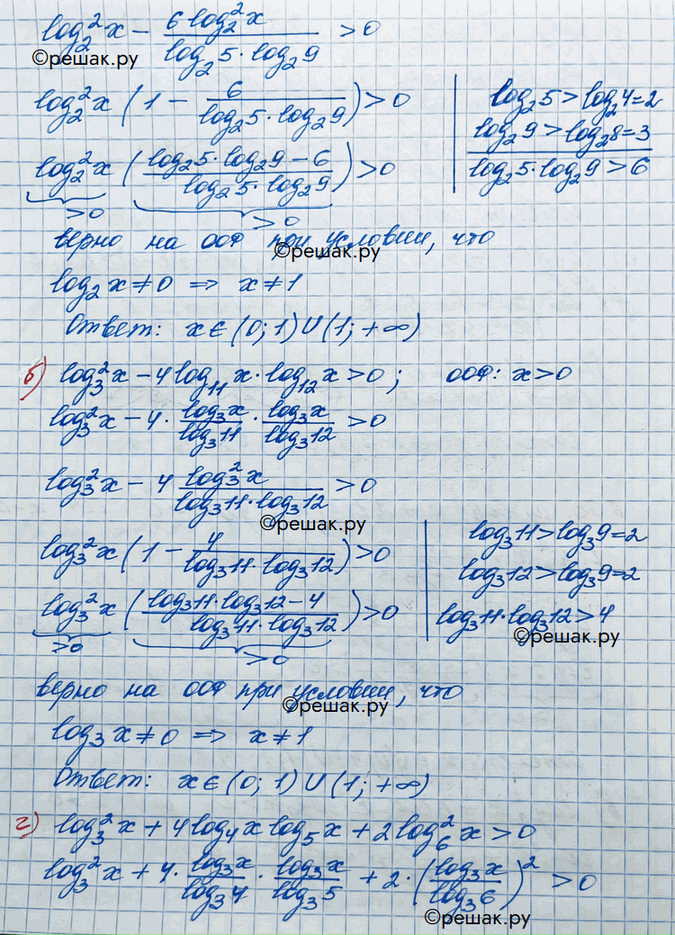 log₂²x − (6 log₂²x)/(log₂5·log₂9) > 0
©решак.ру
log₂²x (1 − 6/(log₂5·log₂9)) > 0
log₂5 > log₂4 = 2
log₂9 > log₂8 = 3
log₂5·log₂9 > 6
log₂²x ((log₂5·log₂9 − 6)/(log₂5·log₂9)) > 0
>0 >0
верно на ООФ при условии, что
©решак.ру
log₂x ≠ 0 ⇒ x ≠ 1
Ответ: x ∈ (0; 1) ∪ (1; +∞)
б) log₃²x − 4log₁₁x·log₁₂x > 0; ООФ: x > 0
log₃²x − 4·(log₃x)/(log₃11)·(log₃x)/(log₃12) > 0
log₃²x − 4 (log₃²x)/(log₃11·log₃12) > 0
©решак.ру
log₃²x (1 − 4/(log₃11·log₃12)) > 0
log₃11 > log₃9 = 2
log₃12 > log₃9 = 2
log₃11·log₃12 > 4
©решак.ру
log₃²x ((log₃11·log₃12 − 4)/(log₃11·log₃12)) > 0
≥0 >0
верно на ООФ при условии, что
©решак.ру
log₃x ≠ 0 ⇒ x ≠ 1
Ответ: x ∈ (0; 1) ∪ (1; +∞)
г) log₃²x + 4log₄x log₅x + 2log₆²x > 0
log₃²x + 4·(log₃x)/(log₃4)·(log₃x)/(log₃5) + 2·((log₃x)/(log₃6))² > 0
©решак.ру